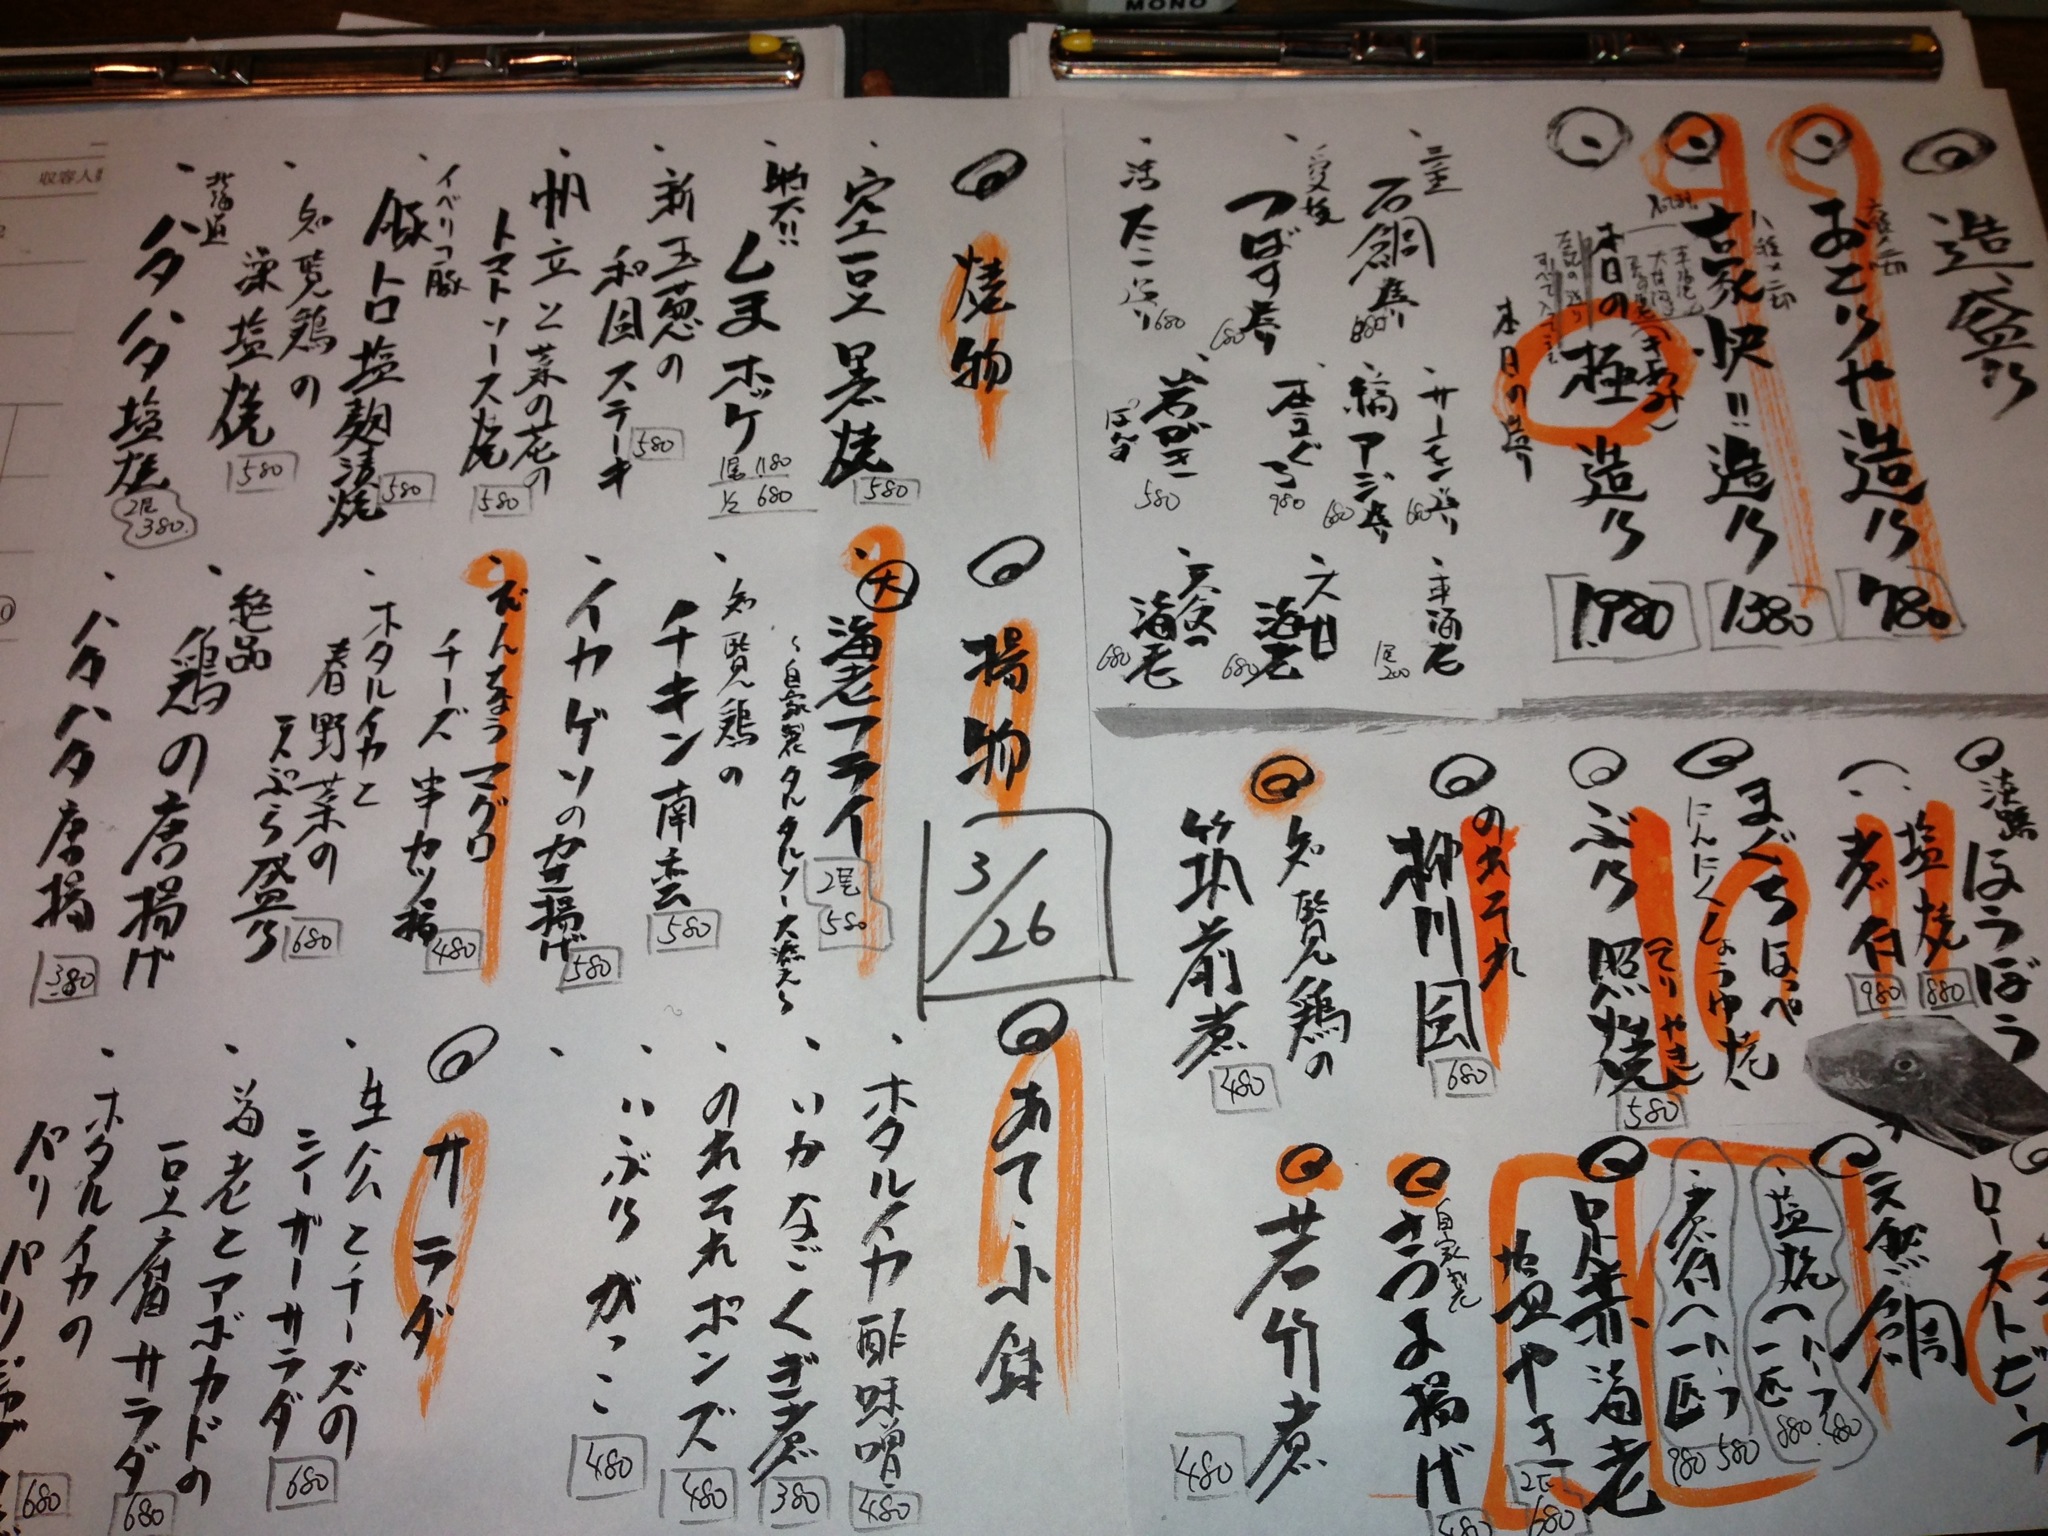 MONO
造り盛り
おこりや造り
780
古家快!!造り
1380
本日の
極
造り
1980
本日の造り
三重
石鯛造り
つばす造り
680
活たこ造り
680
サーモン造り
680
縞アジ造り
680
本まぐろ
980
岩がき
ぽん酢
580
1尾200
甘海老
680
680
淡路
ほうぼう
塩焼
880
煮付
980
まぐろほっぺ
にんにくしょうゆ焼
ぶり照焼
てりやき
580
のれそれ
柳川風
680
知覧鶏の
筑前煮
480
ローストビーフ
天然鯛
・塩焼ヘ
一匹
480
880
・煮付ヘ
一匹
580
980
赤海老
塩やき
2尾
680
自家製
さつま揚げ
480
若竹煮
480
焼物
・空豆黒焼
580
・特大!!
しまホッケ
1尾 1180
1/2 680
・新玉葱の
和風ステーキ
580
・帆立と菜の花の
トマトソース焼
580
・イベリコ豚
豚トロ塩麹漬焼
580
・知覧鶏の
藻塩焼
580
・北海道
ハタハタ塩焼
2尾
380
揚物
・大海老フライ
~自家製タルタルソース添え~
2尾
580
・知覧鶏の
チキン南蛮
580
・イカゲソの唐揚げ
580
・マグロ
チーズ串カツ
480
・ホタルイカと
春野菜の
天ぷら盛り
680
・絶品
鶏の唐揚げ
・ハタハタ唐揚
380
3/26
あて・小鉢
・ホタルイカ酢味噌
480
・いかなごくぎ煮
380
・のれそれポンズ
480
・いぶりがっこ
480
サラダ
・生ハムとチーズの
シーザーサラダ
680
・海老とアボカドの
豆腐サラダ
680
・ホタルイカの
パリパリ
680
収容人